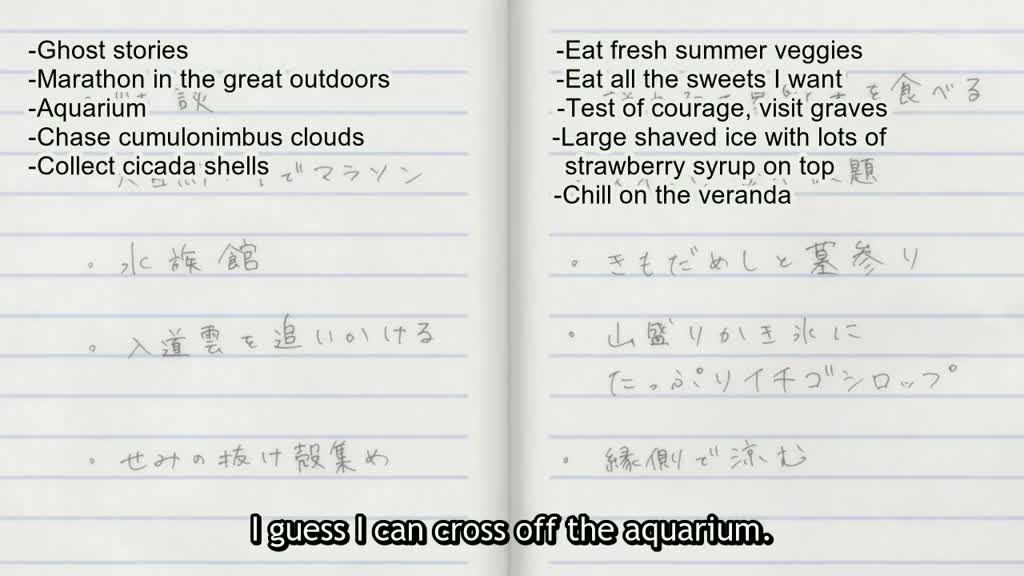 -Ghost stories
-Marathon in the great outdoors
-Aquarium
-Chase cumulonimbus clouds
-Collect cicada shells
談
でマラソン
・水族館
・入道雲を追いかける
・せみの抜け殻集め
-Eat fresh summer veggies
-Eat all the sweets I want
-Test of courage, visit graves
-Large shaved ice with lots of
strawberry syrup on top
-Chill on the veranda
を食べる
題
・きもだめしと墓参り
・山盛りかき氷に
たっぷりイチゴシロップ
・縁側で涼む
I guess I can cross off the aquarium.